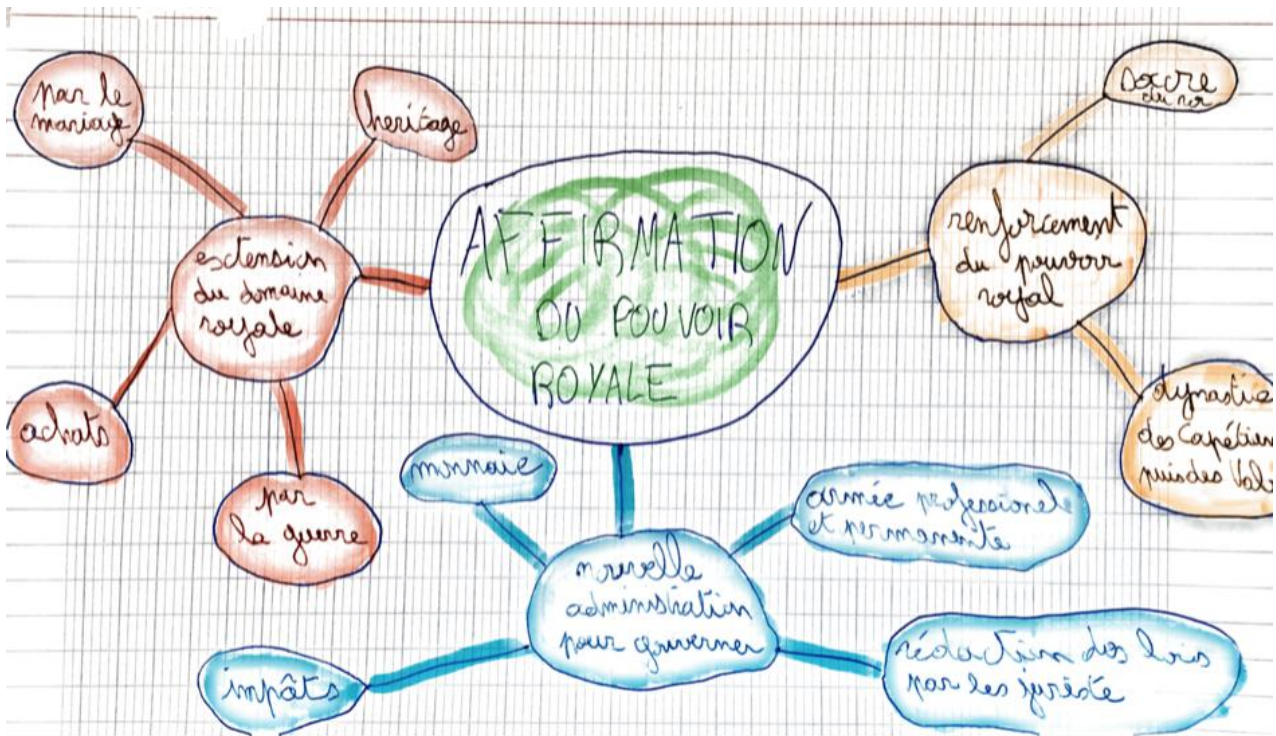 AFFIRMATION
DU POUVOIR
ROYALE
extension
du domaine
royale
par le
mariage
heritage
achats
par
la guerre
renforcement
du pouvoir
royal
sacre
du roi
dynastie
des Capétien
puis des Val
nouvelle
administration
pour gouverner
monnaie
armée professionele
et permanente
impôts
rédaction des lois
par les juriste